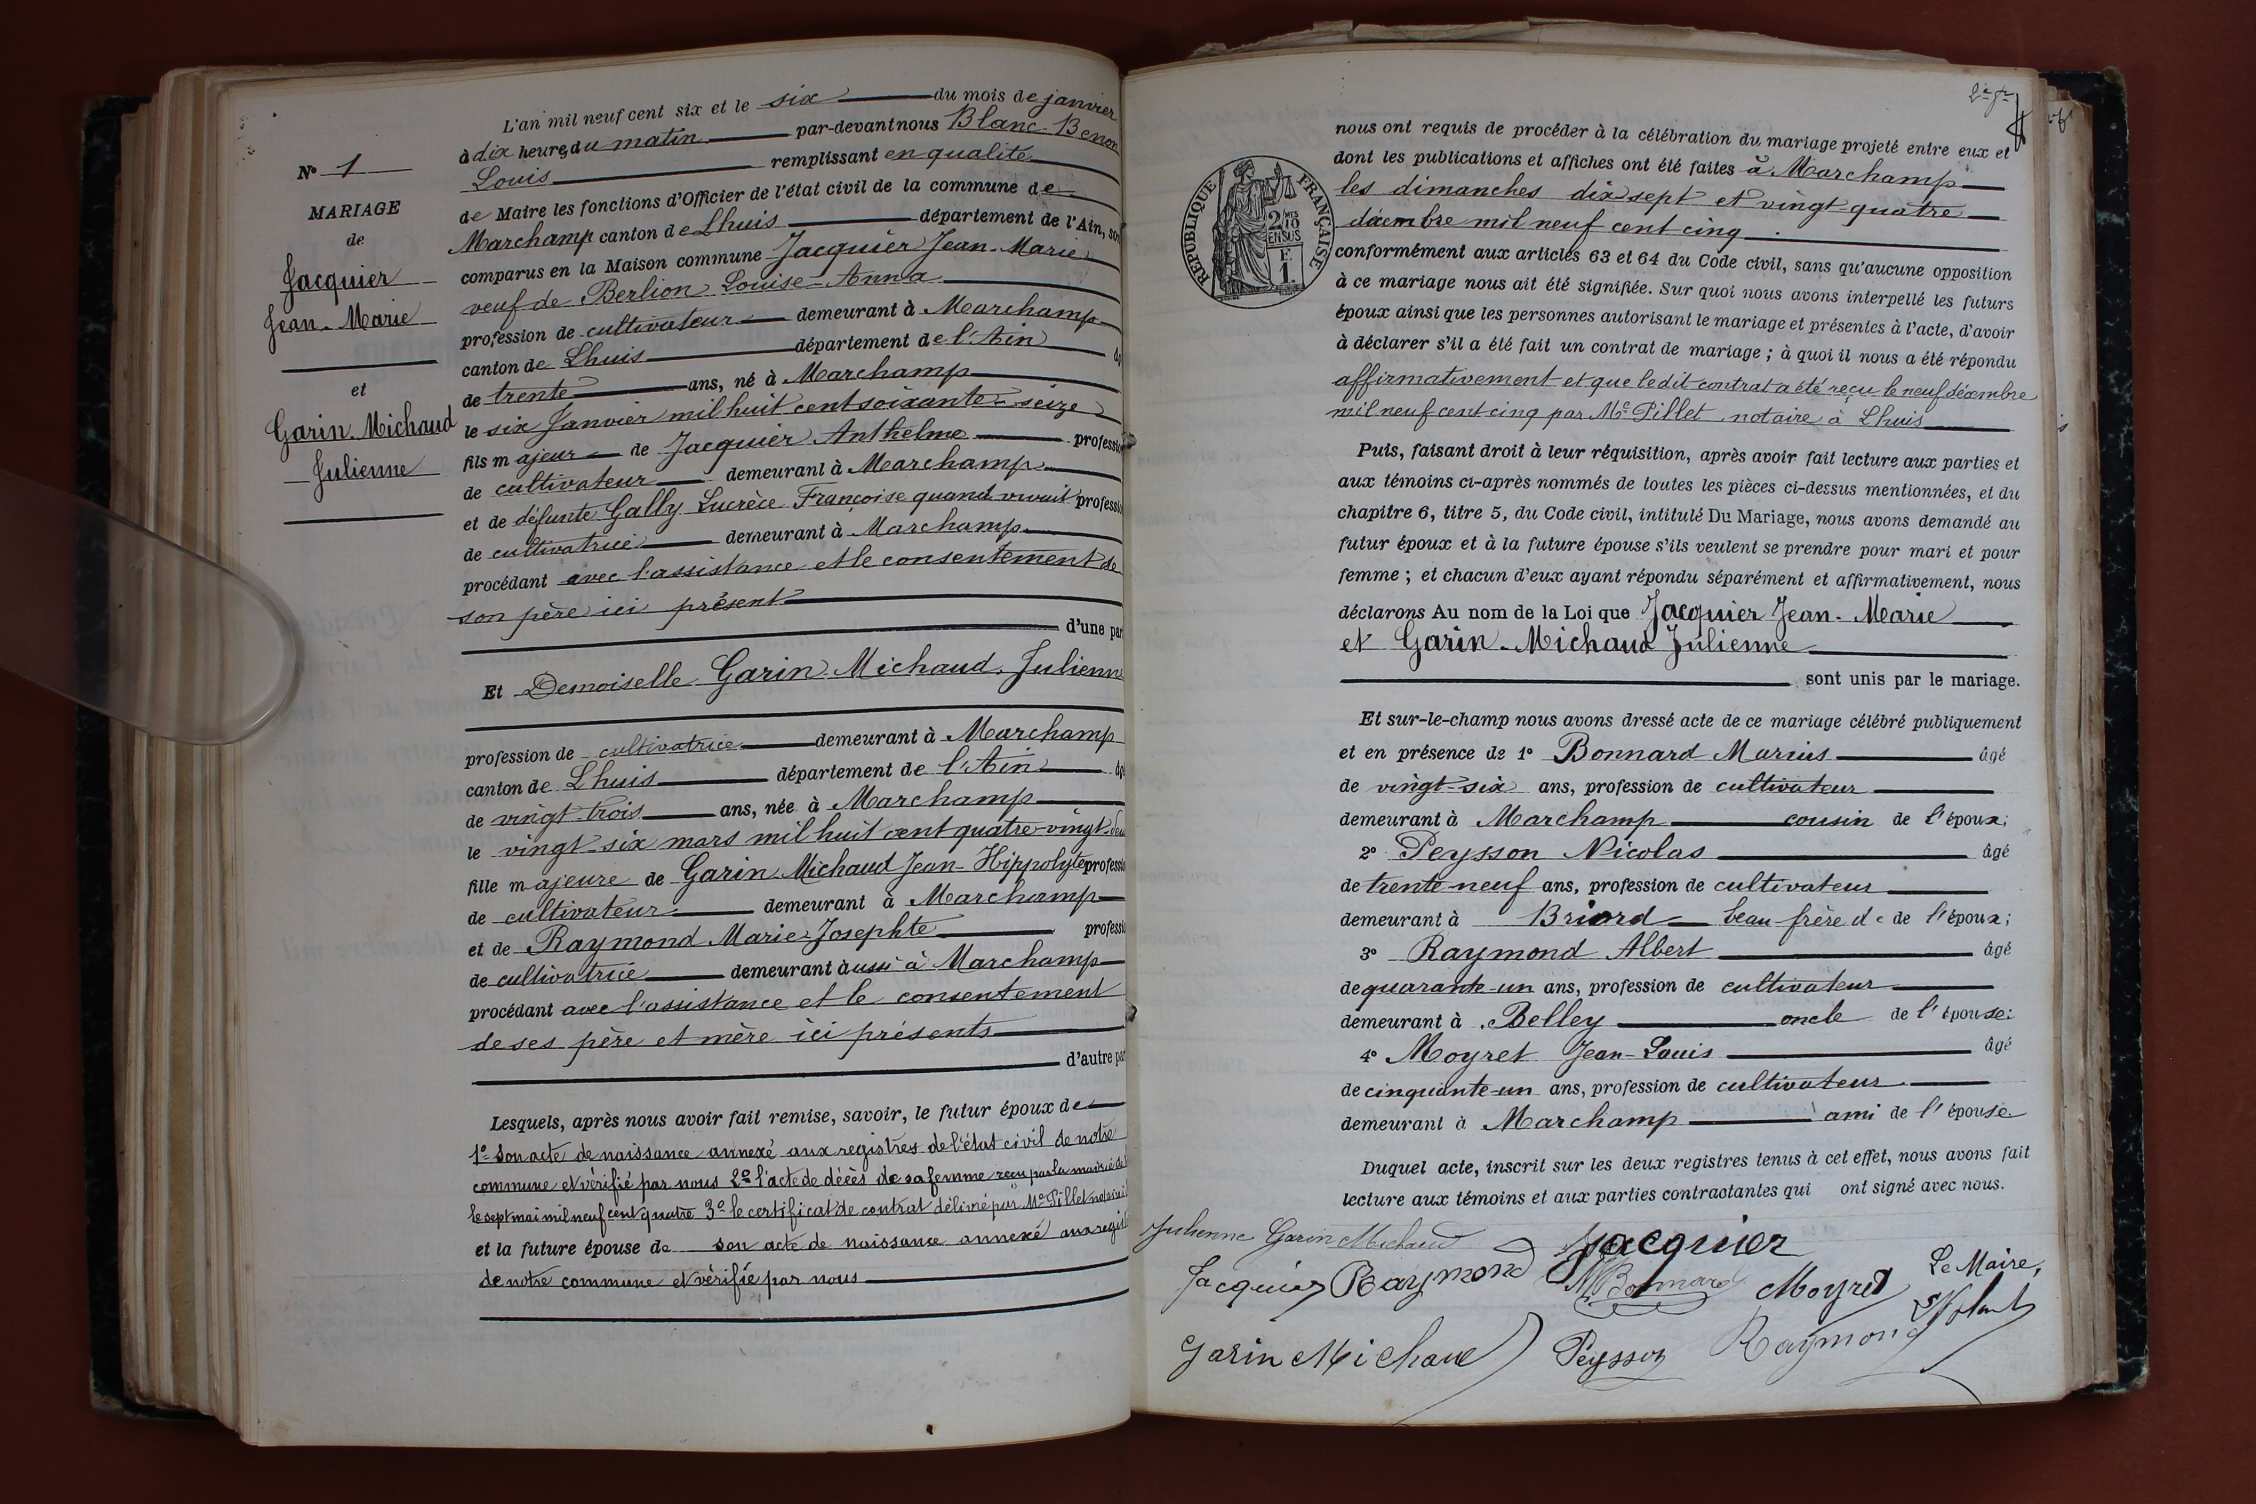 N° 1
MARIAGE
de
Jacquier
Jean-Marie
et
Garin-Michaud
Julienne
L'an mil neuf cent six et le six du mois de janvier
à dix heures du matin par-devant nous Blanc-Benon
Louis remplissant en qualité
de Maire les fonctions d'Officier de l'état civil de la commune de
Marchamp canton de Lhuis département de l'Ain, son
comparus en la Maison commune Jacquier Jean-Marie
veuf de Berlion Louise-Anna
profession de cultivateur demeurant à Marchamp
canton de Lhuis département de l'Ain
de trente ans, né à Marchamp
le six Janvier mil huit cent soixante-seize
fils majeur de Jacquier Anthelme professio
de cultivateur demeurant à Marchamp
et de défunte Gally Lucrèce Françoise quand vivait professio
de cultivatrice demeurant à Marchamp
procédant avec l'assistance et le consentement de
son père ici présent
d'une par
Et Demoiselle Garin-Michaud Julienne
profession de cultivatrice demeurant à Marchamp
canton de Lhuis département de l'Ain
de vingt-trois ans, née à Marchamp
le vingt-six mars mil huit cent quatre-vingt-deu
fille majeure de Garin-Michaud Jean-Hippolyte professio
de cultivateur demeurant à Marchamp
et de Raymond Marie-Josephte professio
de cultivatrice demeurant aussi à Marchamp
procédant avec l'assistance et le consentement
de ses père et mère ici présents
d'autre par
Lesquels, après nous avoir fait remise, savoir, le futur époux de
1° Son acte de naissance annexé aux registres de l'état civil de notre
commune et vérifié par nous 2° l'acte de décès de sa femme reçu par la mairie de
le sept mai mil neuf cent quatre 3° le certificat de contrat délivré par Me Pillet notaire
et la future épouse de son acte de naissance annexé aux regist
de notre commune et vérifié par nous
RÉPUBLIQUE FRANÇAISE
2/10
EN SUS
nous ont requis de procéder à la célébration du mariage projeté entre eux et
dont les publications et affiches ont été faites à Marchamp
les dimanches dix-sept et vingt-quatre
décembre mil neuf cent cinq
conformément aux articles 63 et 64 du Code civil, sans qu'aucune opposition
à ce mariage nous ait été signifiée. Sur quoi nous avons interpellé les futurs
époux ainsi que les personnes autorisant le mariage et présentes à l'acte, d'avoir
à déclarer s'il a été fait un contrat de mariage ; à quoi il nous a été répondu
affirmativement et que ledit contrat a été reçu le neuf décembre
mil neuf cent cinq par Me Pillet notaire à Lhuis
Puis, faisant droit à leur réquisition, après avoir fait lecture aux parties et
aux témoins ci-après nommés de toutes les pièces ci-dessus mentionnées, et du
chapitre 6, titre 5, du Code civil, intitulé Du Mariage, nous avons demandé au
futur époux et à la future épouse s'ils veulent se prendre pour mari et pour
femme ; et chacun d'eux ayant répondu séparément et affirmativement, nous
déclarons Au nom de la Loi que Jacquier Jean-Marie
et Garin-Michaud Julienne
sont unis par le mariage.
Et sur-le-champ nous avons dressé acte de ce mariage célébré publiquement
et en présence de 1° Bonnard Marius âgé
de vingt-six ans, profession de cultivateur
demeurant à Marchamp cousin de l'époux;
2° Peysson Nicolas âgé
de trente-neuf ans, profession de cultivateur
demeurant à Briord beau-frère de de l'époux;
3° Raymond Albert âgé
de quarante-un ans, profession de cultivateur
demeurant à Belley oncle de l'épouse;
4° Moyret Jean-Louis âgé
de cinquante-un ans, profession de cultivateur
demeurant à Marchamp ami de l'épouse
Duquel acte, inscrit sur les deux registres tenus à cet effet, nous avons fait
lecture aux témoins et aux parties contractantes qui ont signé avec nous.
Julienne Garin Michaud Jacquier
Le Maire,
Jacquier Raymond M Bonnard Moyret
Garin Michaud Peysson Raymond